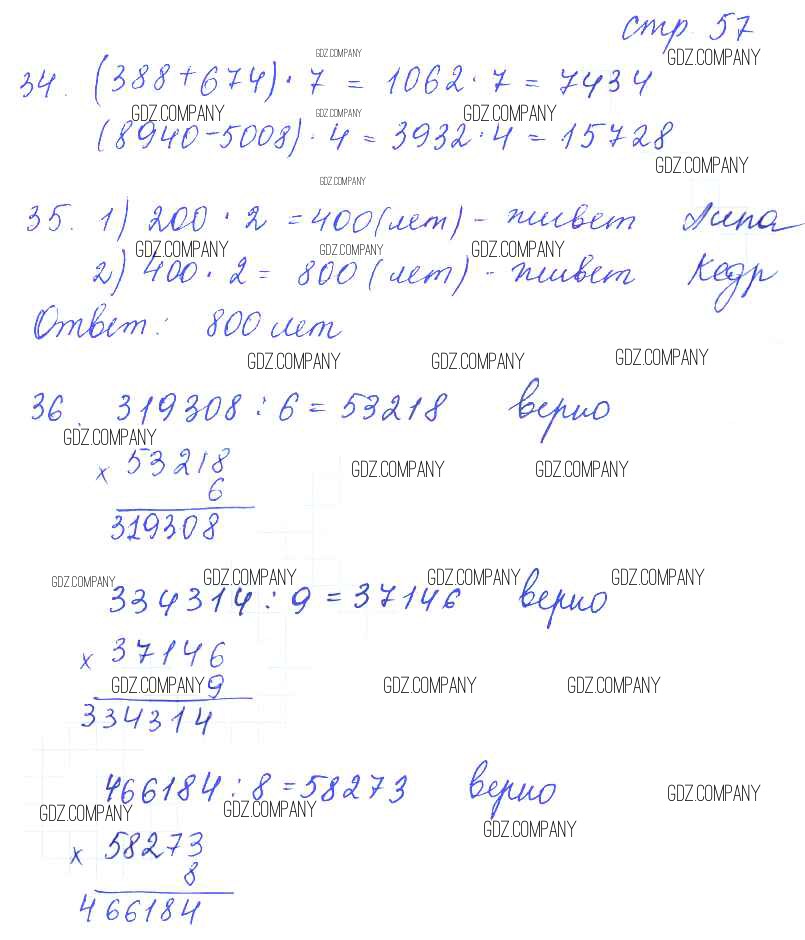 стр. 57
GDZ.COMPANY GDZ.COMPANY
34. (388+674)·7 = 1062·7 = 7434
GDZ.COMPANY GDZ.COMPANY GDZ.COMPANY
(8940-5008)·4 = 3932·4 = 15728
GDZ.COMPANY
GDZ.COMPANY
35. 1) 200·2 = 400(лет) - живет Липа
GDZ.COMPANY GDZ.COMPANY GDZ.COMPANY
2) 400·2 = 800 (лет) - живет Кедр
Ответ: 800 лет
GDZ.COMPANY GDZ.COMPANY GDZ.COMPANY
36. 319308 : 6 = 53218 верно
GDZ.COMPANY
x 53218
GDZ.COMPANY GDZ.COMPANY
6
319308
GDZ.COMPANY GDZ.COMPANY GDZ.COMPANY GDZ.COMPANY
334314 : 9 = 37146 верно
x 37146
GDZ.COMPANY 9 GDZ.COMPANY GDZ.COMPANY
334314
466184 : 8 = 58273 верно GDZ.COMPANY
GDZ.COMPANY GDZ.COMPANY
GDZ.COMPANY
x 58273
8
466184